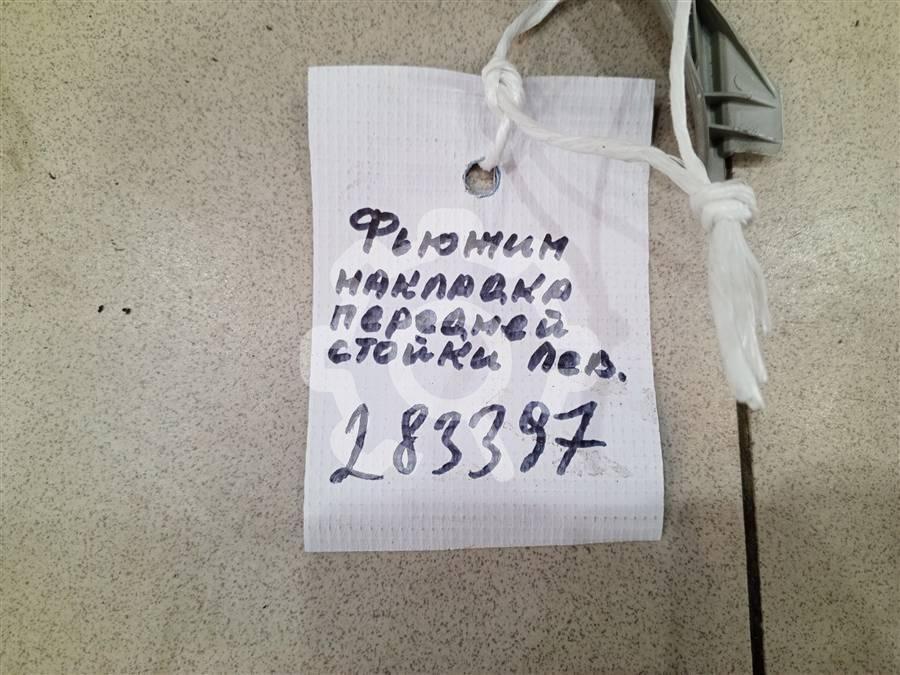 Фьюжин
накладка
передней
стойки лев.
283397